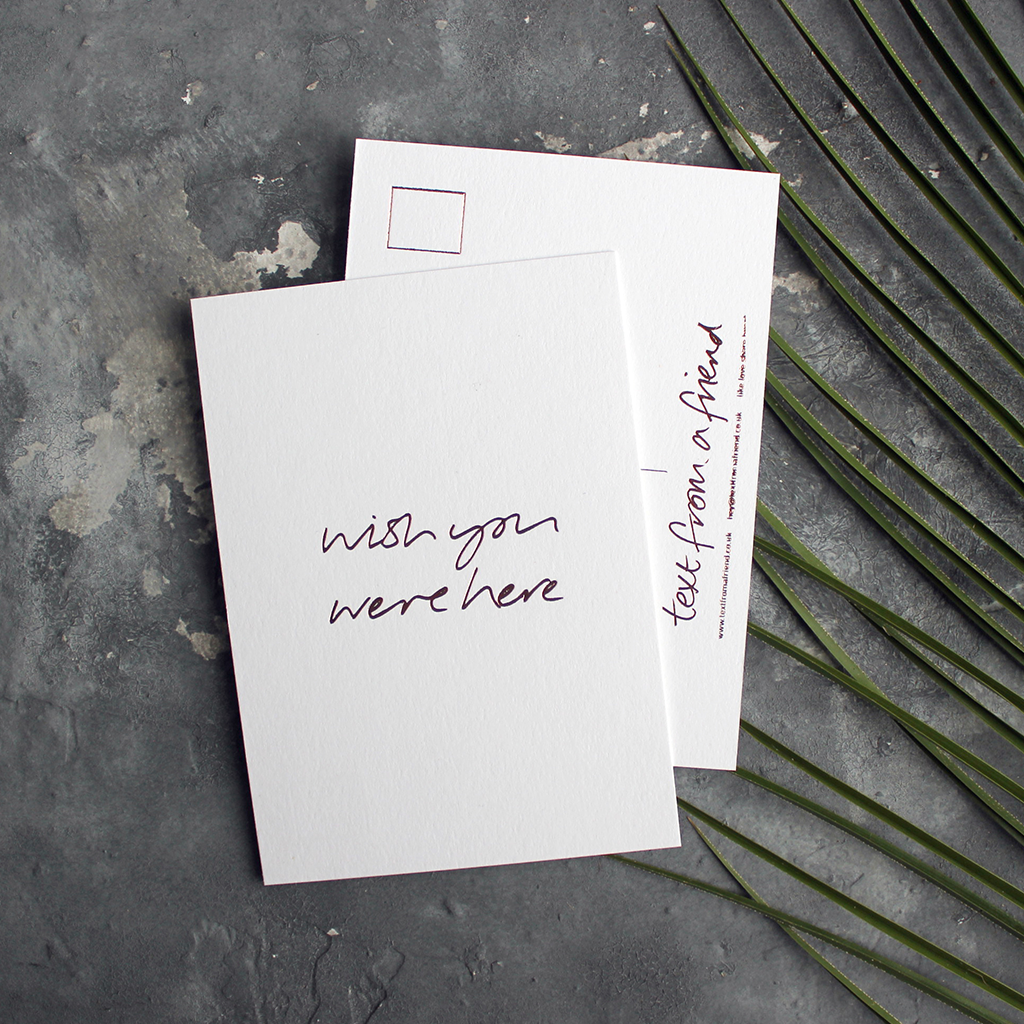 wish you
were here
text from a friend
www.textfromafriend.co.uk hey@textfromafriend.co.uk like love share